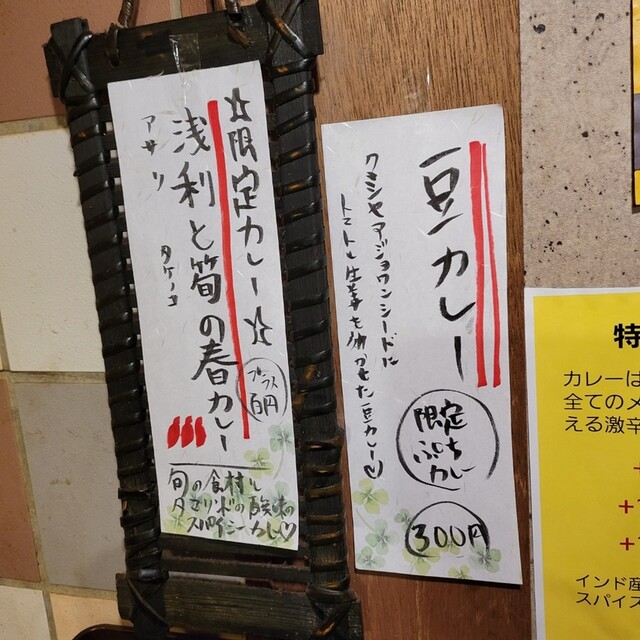 ☆限定カレー☆
浅利と筍の春カレー
アサリ
タケノコ
プラス
百円
旬の食材
スパイシーカレー♡
豆カレー
クミンやアジョワンシードに
トマトと生姜を効かせた豆カレー♡
限定
ぷち
カレー
300円
特
カレーは
全てのメ
える激辛
+
+1
+1
インド産
スパイス